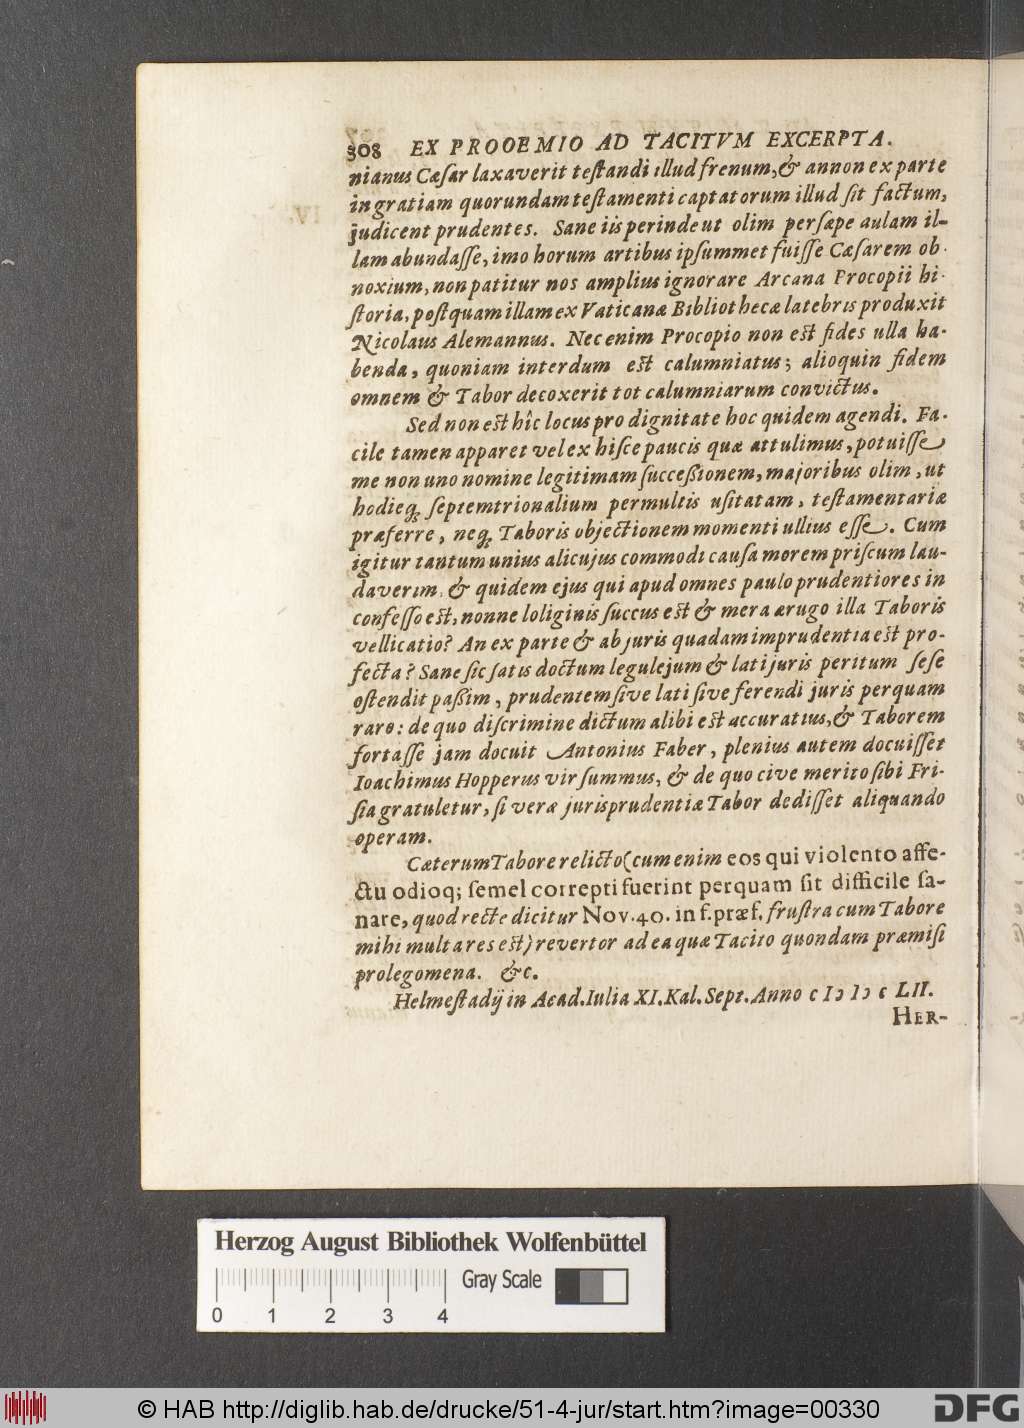 308 EX PROOEMIO AD TACITVM EXCERPTA.
nianus Cæsar laxaverit testandi illud frenum, & annon ex parte
in gratiam quorundam testamenti captatorum illud sit factum,
judicent prudentes. Sane iis perinde ut olim persæpe aulam il-
lam abundasse, imo horum artibus ipsummet fuisse Cæsarem ob-
noxium, non patitur nos amplius ignorare Arcana Procopii hi-
storia, postquam illam ex Vaticanæ Bibliothecæ latebris produxit
Nicolaus Alemannus. Nec enim Procopio non est fides ulla ha-
benda, quoniam interdum est calumniatus; alioquin fidem
omnem & Tabor decoxerit tot calumniarum convictus.
Sed non est hîc locus pro dignitate hoc quidem agendi. Fa-
cile tamen apparet vel ex hisce paucis quæ attulimus, potuisse
me non uno nomine legitimam successionem, majoribus olim, ut
hodieq; septemtrionalium permultis usitatam, testamentariæ
præferre, neq; Taboris objectionem momenti ullius esse. Cum
igitur tantum unius alicujus commodi causa morem priscum lau-
daverim, & quidem ejus qui apud omnes paulo prudentiores in
confesso est, nonne loliginis succus est & mera ærugo illa Taboris
vellicatio? An ex parte & ab juris quadam imprudentia est pro-
fecta? Sane sic satis doctum legulejum & lati juris peritum sese
ostendit passim, prudentem sive lati sive ferendi juris perquam
raro: de quo discrimine dictum alibi est accuratius, & Taborem
fortasse jam docuit Antonius Faber, plenius autem docuisset
Ioachimus Hopperus vir summus, & de quo cive merito sibi Fri-
sia gratuletur, si veræ jurisprudentiæ Tabor dedisset aliquando
operam.
Cæterum Tabore relicto (cum enim eos qui violento affe-
ctu odioq; semel correpti fuerint perquam sit difficile sa-
nare, quod recte dicitur Nov. 40. in f. præf. frustra cum Tabore
mihi multa res est) revertor ad ea quæ Tacito quondam præmisi
prolegomena. &c.
Helmestadij in Acad. Iulia XI. Kal. Sept. Anno c Iɔ Iɔ c LII.
HER-
Herzog August Bibliothek Wolfenbüttel
Gray Scale
0 1 2 3 4
© HAB http://diglib.hab.de/drucke/51-4-jur/start.htm?image=00330
DFG